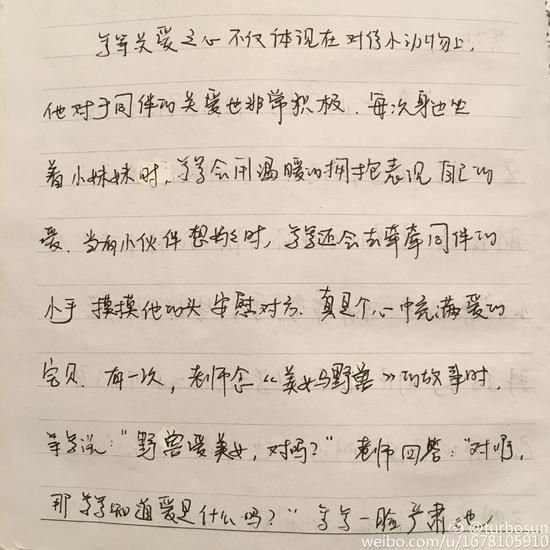 关爱之心不仅体现在对待小动物上，
他对于同伴的关爱也非常积极。每次身边坐
着小妹妹时，会用温暖的拥抱表现自己的
爱。当有小伙伴想妈妈时，还会去牵牵同伴的
小手 摸摸他的头 安慰对方。真是个心中充满爱的
宝贝。有一次，老师念《美女与野兽》的故事时，
说：“野兽爱美女，对吗？” 老师回答：“对啊，
那 知道爱是什么吗？” 一脸严肃地
@turbosun
weibo.com/u/1678105910